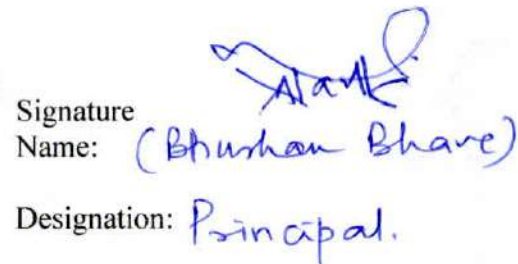 Signature
Name: (Bhushan Bhave)
Designation: Principal.